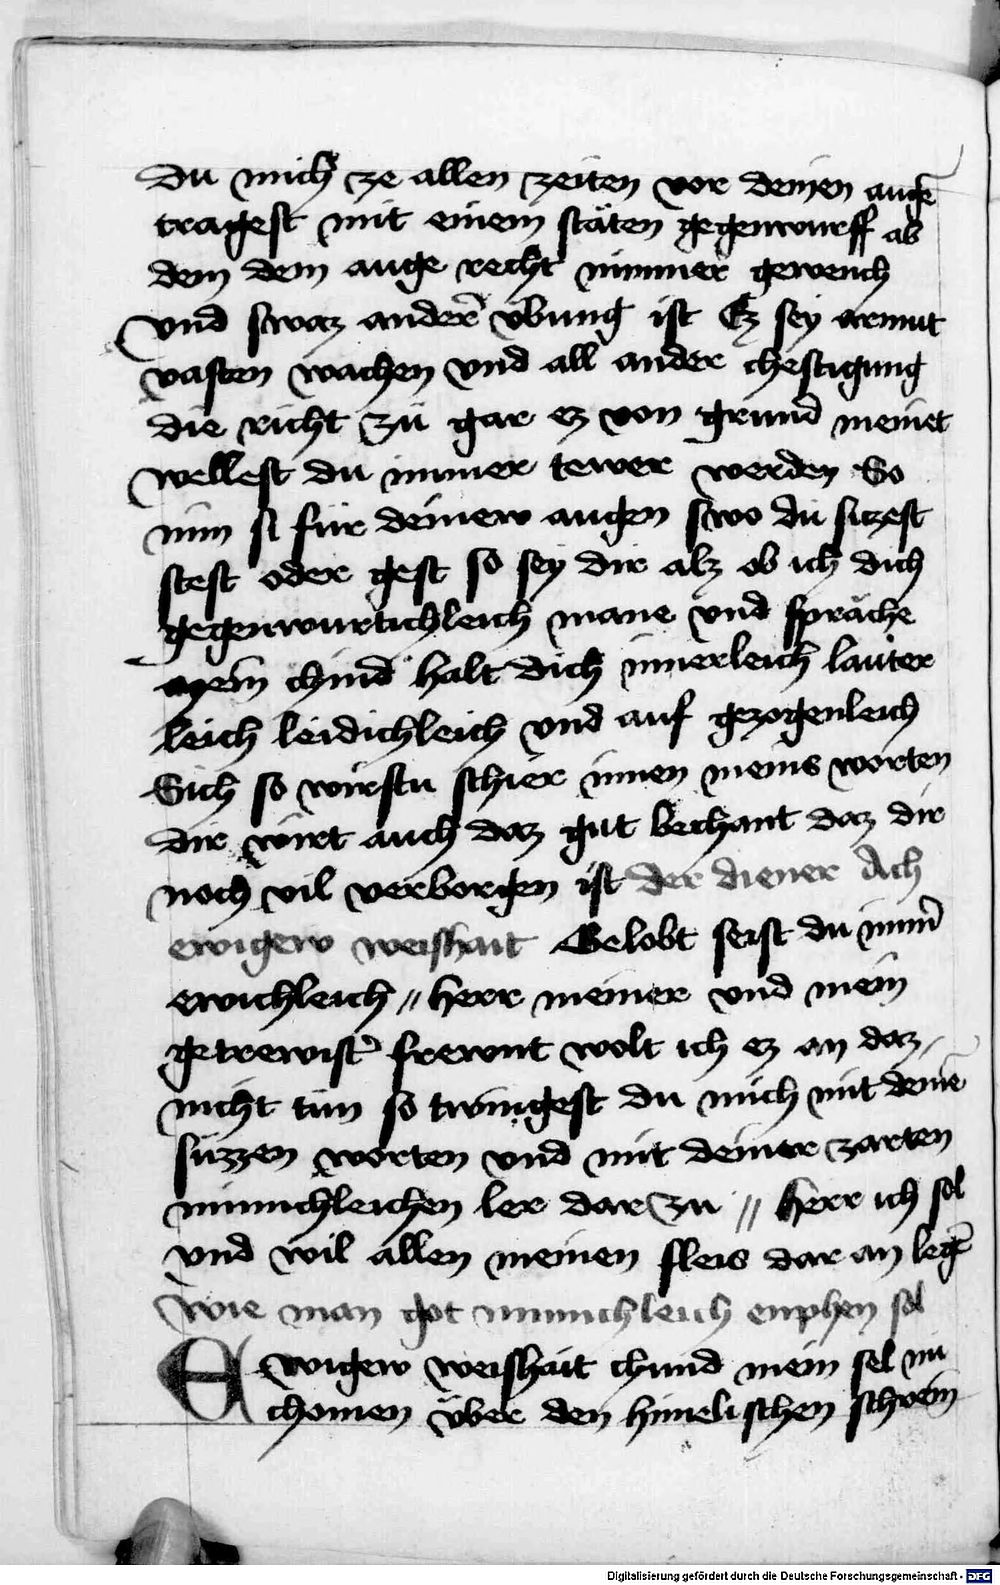 du mich ze allen zeiten vor deinen augē
tragest mit einem stäten gegenwurff ab
dem dem auge recht nimmer geweich
vnd swaz ander übung ist Ez sey armut
vasten wachen vnd all ander chestigung
die richt zü gar ez von grund meinet
wellest du immer tewer werden So
nim si für deinew augen swo dü siczest
stest oder gest so sey dir alz ob ich dich
gegenwurtichleich mane vnd spräche
mein chind halt dich innerleich lauter
leich leidichleich vnd auf gezogenleich
Sich so wirstu schier innen meins worten
dir wirt auch daz gut bechant daz dir
noch vil verborgen ist der diener Ach
ewigew weishait Gelobt seist du immer
ewichleich // herr meiner vnd mein
getrewister frewnt wolt ich ez an daz
nicht tün so twingest du mich mit deinē
süzzen worten vnd mit deiner zarten
minnichleichen ler dar zu // herr ich sol
vnd wil allen meinen fleis dar an legē
wie man got minnichleich enphen sol
Ewigew weishait chund mein sel nu
chomen über den himelischen schrein
Digitalisierung gefördert durch die Deutsche Forschungsgemeinschaft - DFG